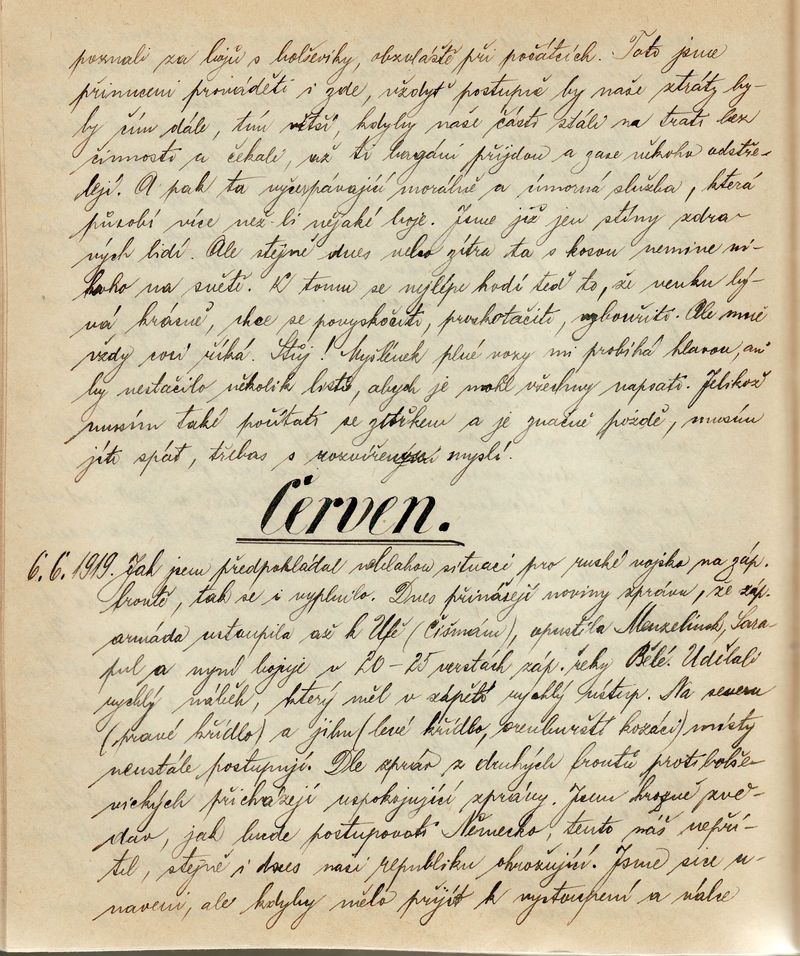 poznali za bojů s bolševiky, obzvláště při počátcích. Toto jsme
přinuceni prováděti i zde, vždyť postupně by naše ztráty by-
ly čím dále, tím větší, kdyby naše části stáli na trati bez
činnosti a čekali, až ti bagáni přijdou a zase někoho odstře-
lejí. A pak ta vyčerpávající morálně a úmorná služba, která
působí více než-li nějaké boje. Jsme již jen stíny zdra-
vých lidí. Ale stejně dnes nebo zítra ta s kosou nemine ni-
koho na světě. K tomu se nejlépe hodí teď to, že venku bý-
vá krásně, chce se povyskočiti, proskotačiti, vybouřiti. Ale mně
vždy cosi říká. Stůj! Myšlének plné vozy mi probíhá hlavou, an
by nestačilo několik listů, abych je mohl všechny napsati. Jelikož
musím také počítati se zítřkem a je značně pozdě, musím
jíti spát, třebas s rozvířenou myslí.
Červen.
6. 6. 1919. Jak jsem předpokládal neblahou situaci pro ruské vojsko na záp.
frontě, tak se i vyplnilo. Dnes přinášejí noviny zprávu, že záp.
armáda ustoupila až k Ufě (Čišmám), opustila Menzelinsk, Sara-
pul a nyní bojuje v 20-25 verstách záp. řeky Bělé. Udělali
rychlý náběh, který měl v zápětí rychlý ústup. Na severu
(pravé křídlo) a jihu (levé křídlo, orenburští kozáci) místy
neustále postupují. Dle zpráv z druhých frontů protibolše-
vických přicházejí uspokojující zprávy. Jsem hrozně zvě-
dav, jak bude postupovati Německo, tento náš nepří-
tel, stejně i dnes naši republiku ohrožující. Jsme sice u-
naveni, ale kdyby mělo přijít k vystoupení a válce